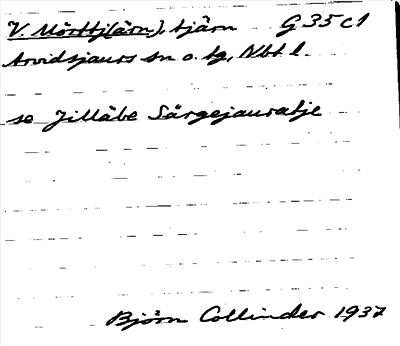 V. Mörttj(ärn), tjärn G 35 c 1
Arvidsjaurs sn o. tg, Nbt l.
se Jillābe Särgejauratje
Björn Collinder 1937